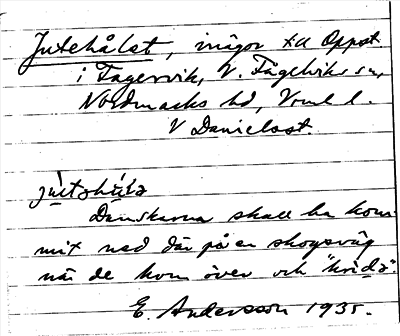 Jutehålet, inägor till Uppst.
i Fagervik, V. Fågelviks sn,
Nordmarks hd, Vrml l.
V Danielsst.
jùtəhʹålə
Danskarna skall ha kom-
mit ned där på en skogsväg
när de kom över och "krida".
E. Andersson 1935.